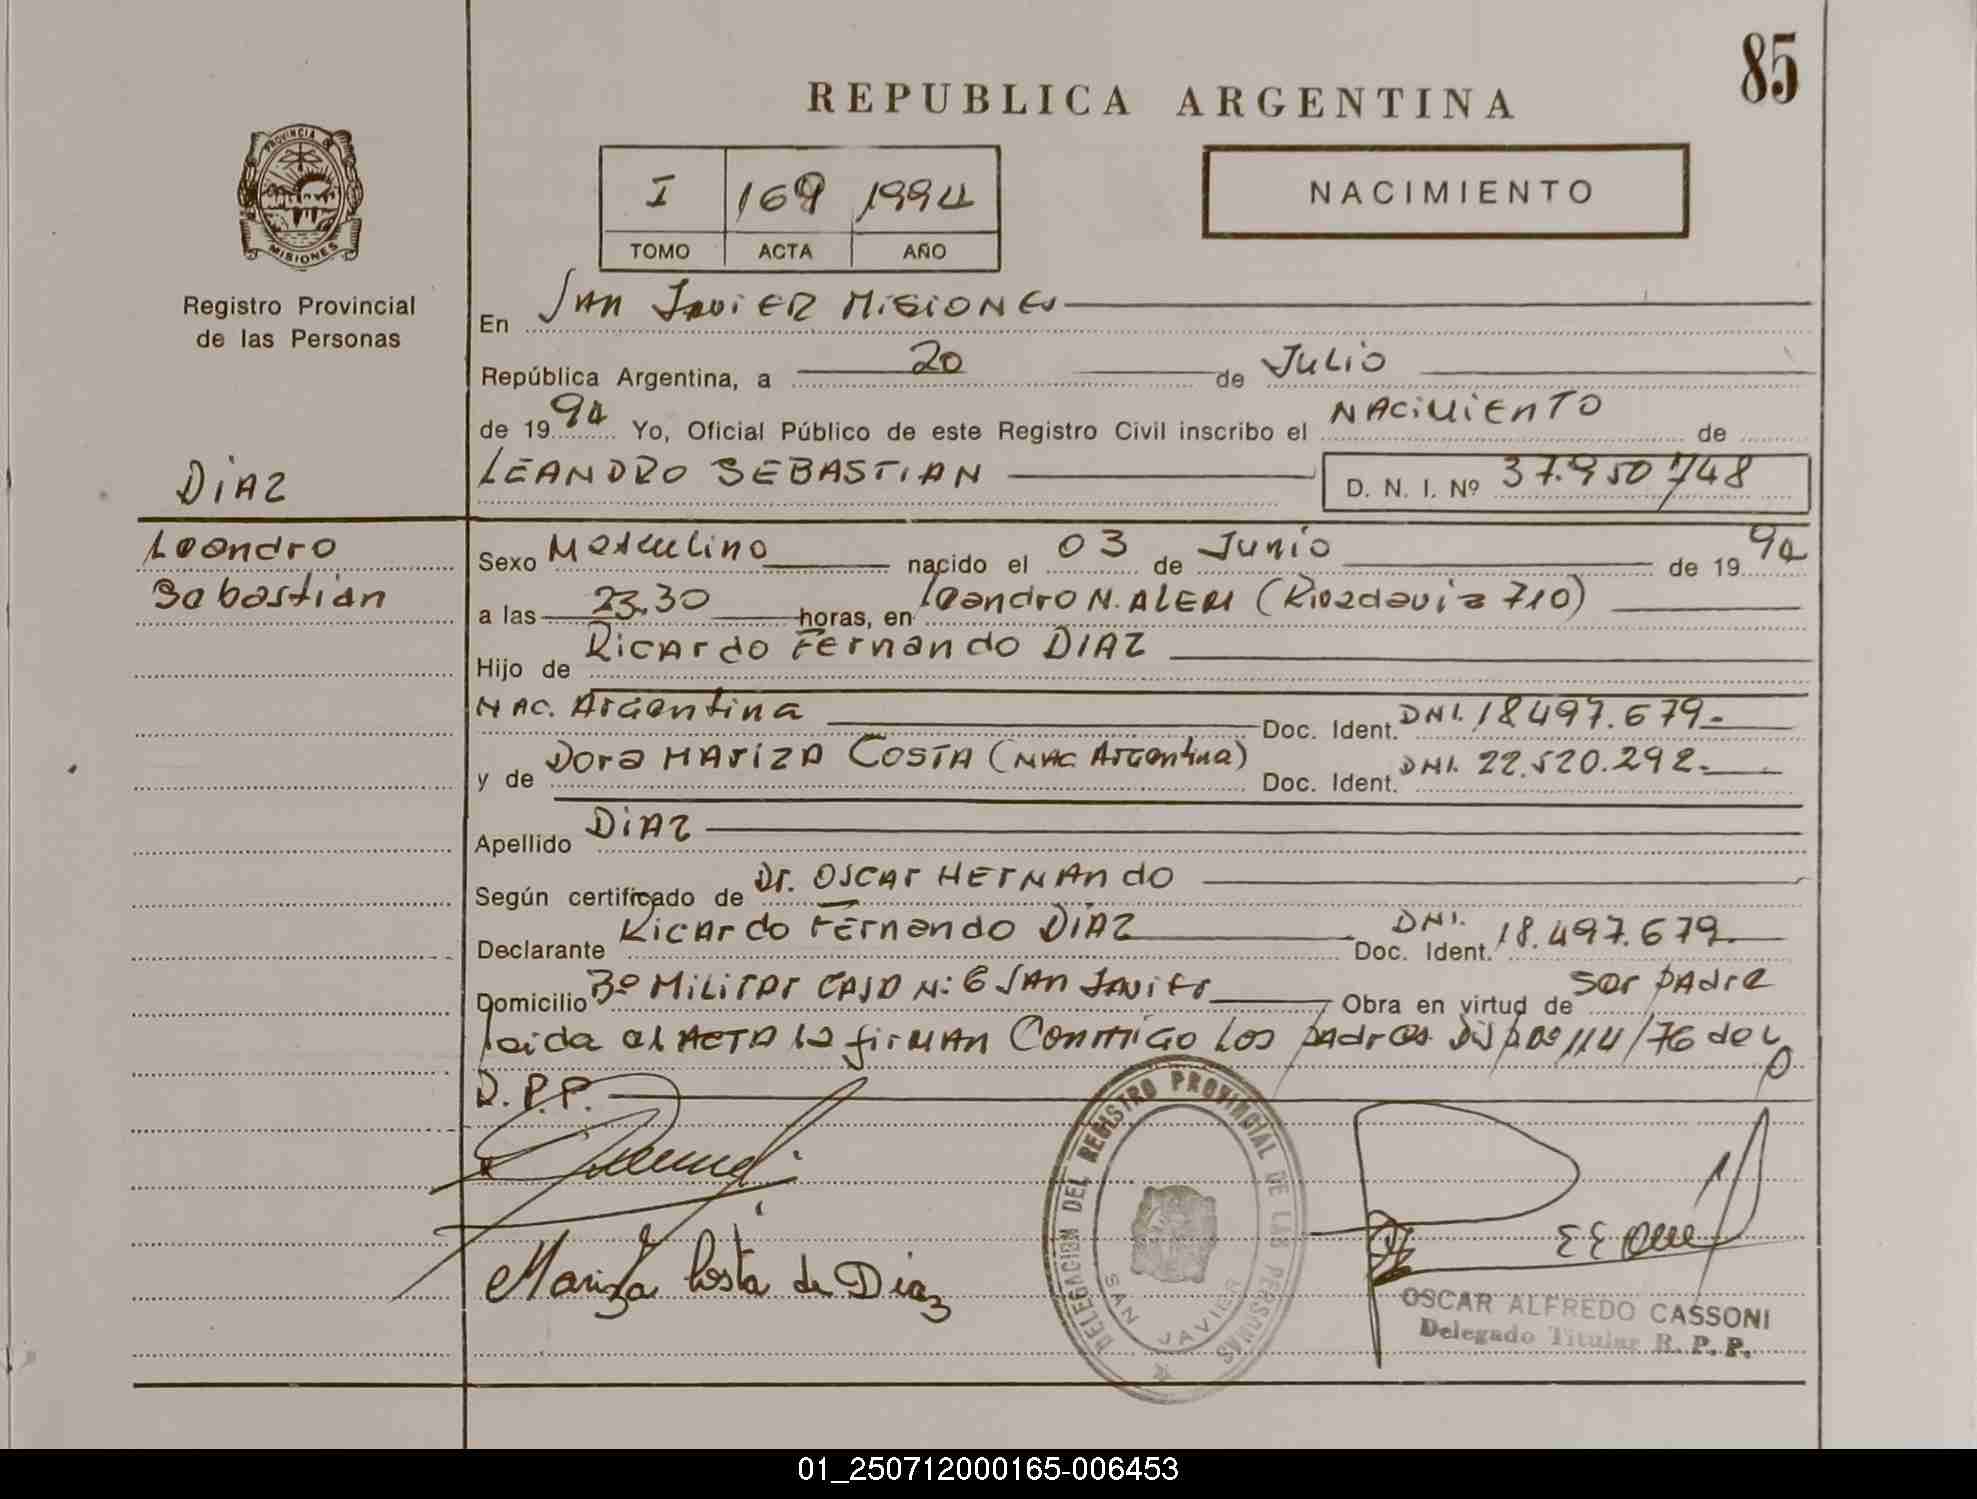 85
REPUBLICA ARGENTINA
PROVINCIA DE
MISIONES
Registro Provincial
de las Personas
I 169 1994
TOMO ACTA AÑO
NACIMIENTO
En San Javier Misiones
República Argentina, a 20 de Julio
de 1994 Yo, Oficial Público de este Registro Civil inscribo el NACIMIENTO de
DIAZ
LEANDRO SEBASTIAN D. N. I. Nº 37.950748
Leandro
Sebastián
Sexo Masculino nacido el 03 de Junio de 1994
a las 23.30 horas, en Leandro N. ALEM (Rivadavia 710)
Hijo de Ricardo Fernando DIAZ
NAC. Argentina Doc. Ident. DNI. 18497.679.
y de Dora MARIZA COSTA (NAC. Argentina) Doc. Ident. DNI. 22.520.292.
Apellido DIAZ
Según certificado de Dr. OSCAR HERNANDO
Declarante Ricardo Fernando DIAZ Doc. Ident. DNI. 18.497.679.
Domicilio Bº Militar CASA N: 6 SAN JAVIER Obra en virtud de ser padre
leida el ACTA la firman Conmigo Los padres Dispos 114/76 del
R.P.P.
Mariza Costa de Diaz
DELEGACION DEL REGISTRO PROVINCIAL DE LAS PERSONAS
SAN JAVIER
OSCAR ALFREDO CASSONI
Delegado Titular R. P. P.
01_250712000165-006453